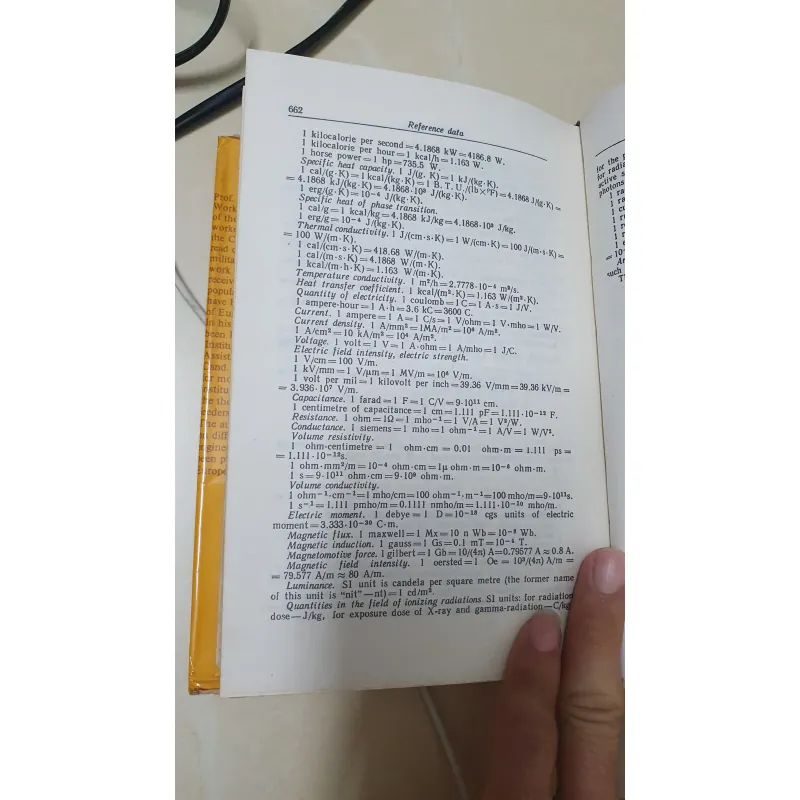 662
Reference data
1 kilocalorie per second=4.1868 kW=4186.8 W.
1 kilocalorie per hour=1 kcal/h=1.163 W.
1 horse power=1 hp=735.5 W.
Specific heat capacity. 1 J/(g. K)=1 kJ/(kg·K).
1 cal/(g·K)=1 kcal/(kg·K)=1 B. T. U./(lb×°F)=4.1868 J/(g·K)=
=4.1868 kJ/(kg·K)=4.1868·10³ J/(kg·K).
1 erg/(g·K)=10⁻⁴ J/(kg·K).
Specific heat of phase transition.
1 cal/g=1 kcal/kg=4.1868 kJ/kg=4.1868·10³ J/kg.
1 erg/g=10⁻⁴ J/(kg·K).
Thermal conductivity. 1 J/(cm·s·K)=1 W/(cm·K)=100 J/(m·s·K)=
=100 W/(m·K).
1 cal/(cm·s·K)=418.68 W/(m·K).
1 cal/(m·s·K)=4.1868 W/(m·K).
1 kcal/(m·h·K)=1.163 W/(m·K).
Temperature conductivity. 1 m²/h=2.7778·10⁻⁴ m²/s.
Heat transfer coefficient. 1 kcal/(m²·K)=1.163 W/(m²·K).
Quantity of electricity. 1 coulomb=1 C=1 A·s=1 J/V.
1 ampere-hour=1 A·h=3.6 kC=3600 C.
Current. 1 ampere=1 A=1 C/s=1 V/ohm=1 V·mho=1 W/V.
Current density. 1 A/mm²=1MA/m²=10⁶ A/m².
1 A/cm²=10 kA/m²=10⁴ A/m².
Voltage. 1 volt=1 V=1 A·ohm=1 A/mho=1 J/C.
Electric field intensity, electric strength.
1 V/cm=100 V/m.
1 kV/mm=1 V/μm=1 MV/m=10⁶ V/m.
1 volt per mil=1 kilovolt per inch=39.36 V/mm=39.36 kV/m=
=3.936·10⁷ V/m.
Capacitance. 1 farad=1 F=1 C/V=9·10¹¹ cm.
1 centimetre of capacitance=1 cm=1.111 pF=1.111·10⁻¹² F.
Resistance. 1 ohm=1Ω=1 mho⁻¹=1 V/A=1 V²/W.
Conductance. 1 siemens=1 mho=1 ohm⁻¹=1 A/V=1 W/V².
Volume resistivity.
1 ohm-centimetre=1 ohm·cm=0.01 ohm·m=1.111 ps=
=1.111·10⁻¹²s.
1 ohm·mm²/m=10⁻⁴ ohm·cm=1μ ohm·m=10⁻⁶ ohm·m.
1 s=9·10¹¹ ohm·cm=9·10⁹ ohm·m.
Volume conductivity.
1 ohm⁻¹·cm⁻¹=1 mho/cm=100 ohm⁻¹·m⁻¹=100 mho/m=9·10¹¹s.
1 s⁻¹=1.111 pmho/m=0.1111 nmho/m=1.111·10⁻¹⁰ mho/m.
Electric moment. 1 debye=1 D=10⁻¹⁸ cgs units of electric
moment=3.333·10⁻³⁰ C·m.
Magnetic flux. 1 maxwell=1 Mx=10 n Wb=10⁻⁸ Wb.
Magnetic induction. 1 gauss=1 Gs=0.1 mT=10⁻⁴ T.
Magnetomotive force. 1 gilbert=1 Gb=10/(4π) A=0.79577 A≈0.8 A.
Magnetic field intensity. 1 oersted=1 Oe=10³/(4π) A/m=
=79.577 A/m≈80 A/m.
Luminance. SI unit is candela per square metre (the former name
of this unit is "nit"—nt)=1 cd/m².
Quantities in the field of ionizing radiations. SI units: for radiation
dose—J/kg, for exposure dose of X-ray and gamma-radiation—C/kg,
for the
for radia
active s
photons
such